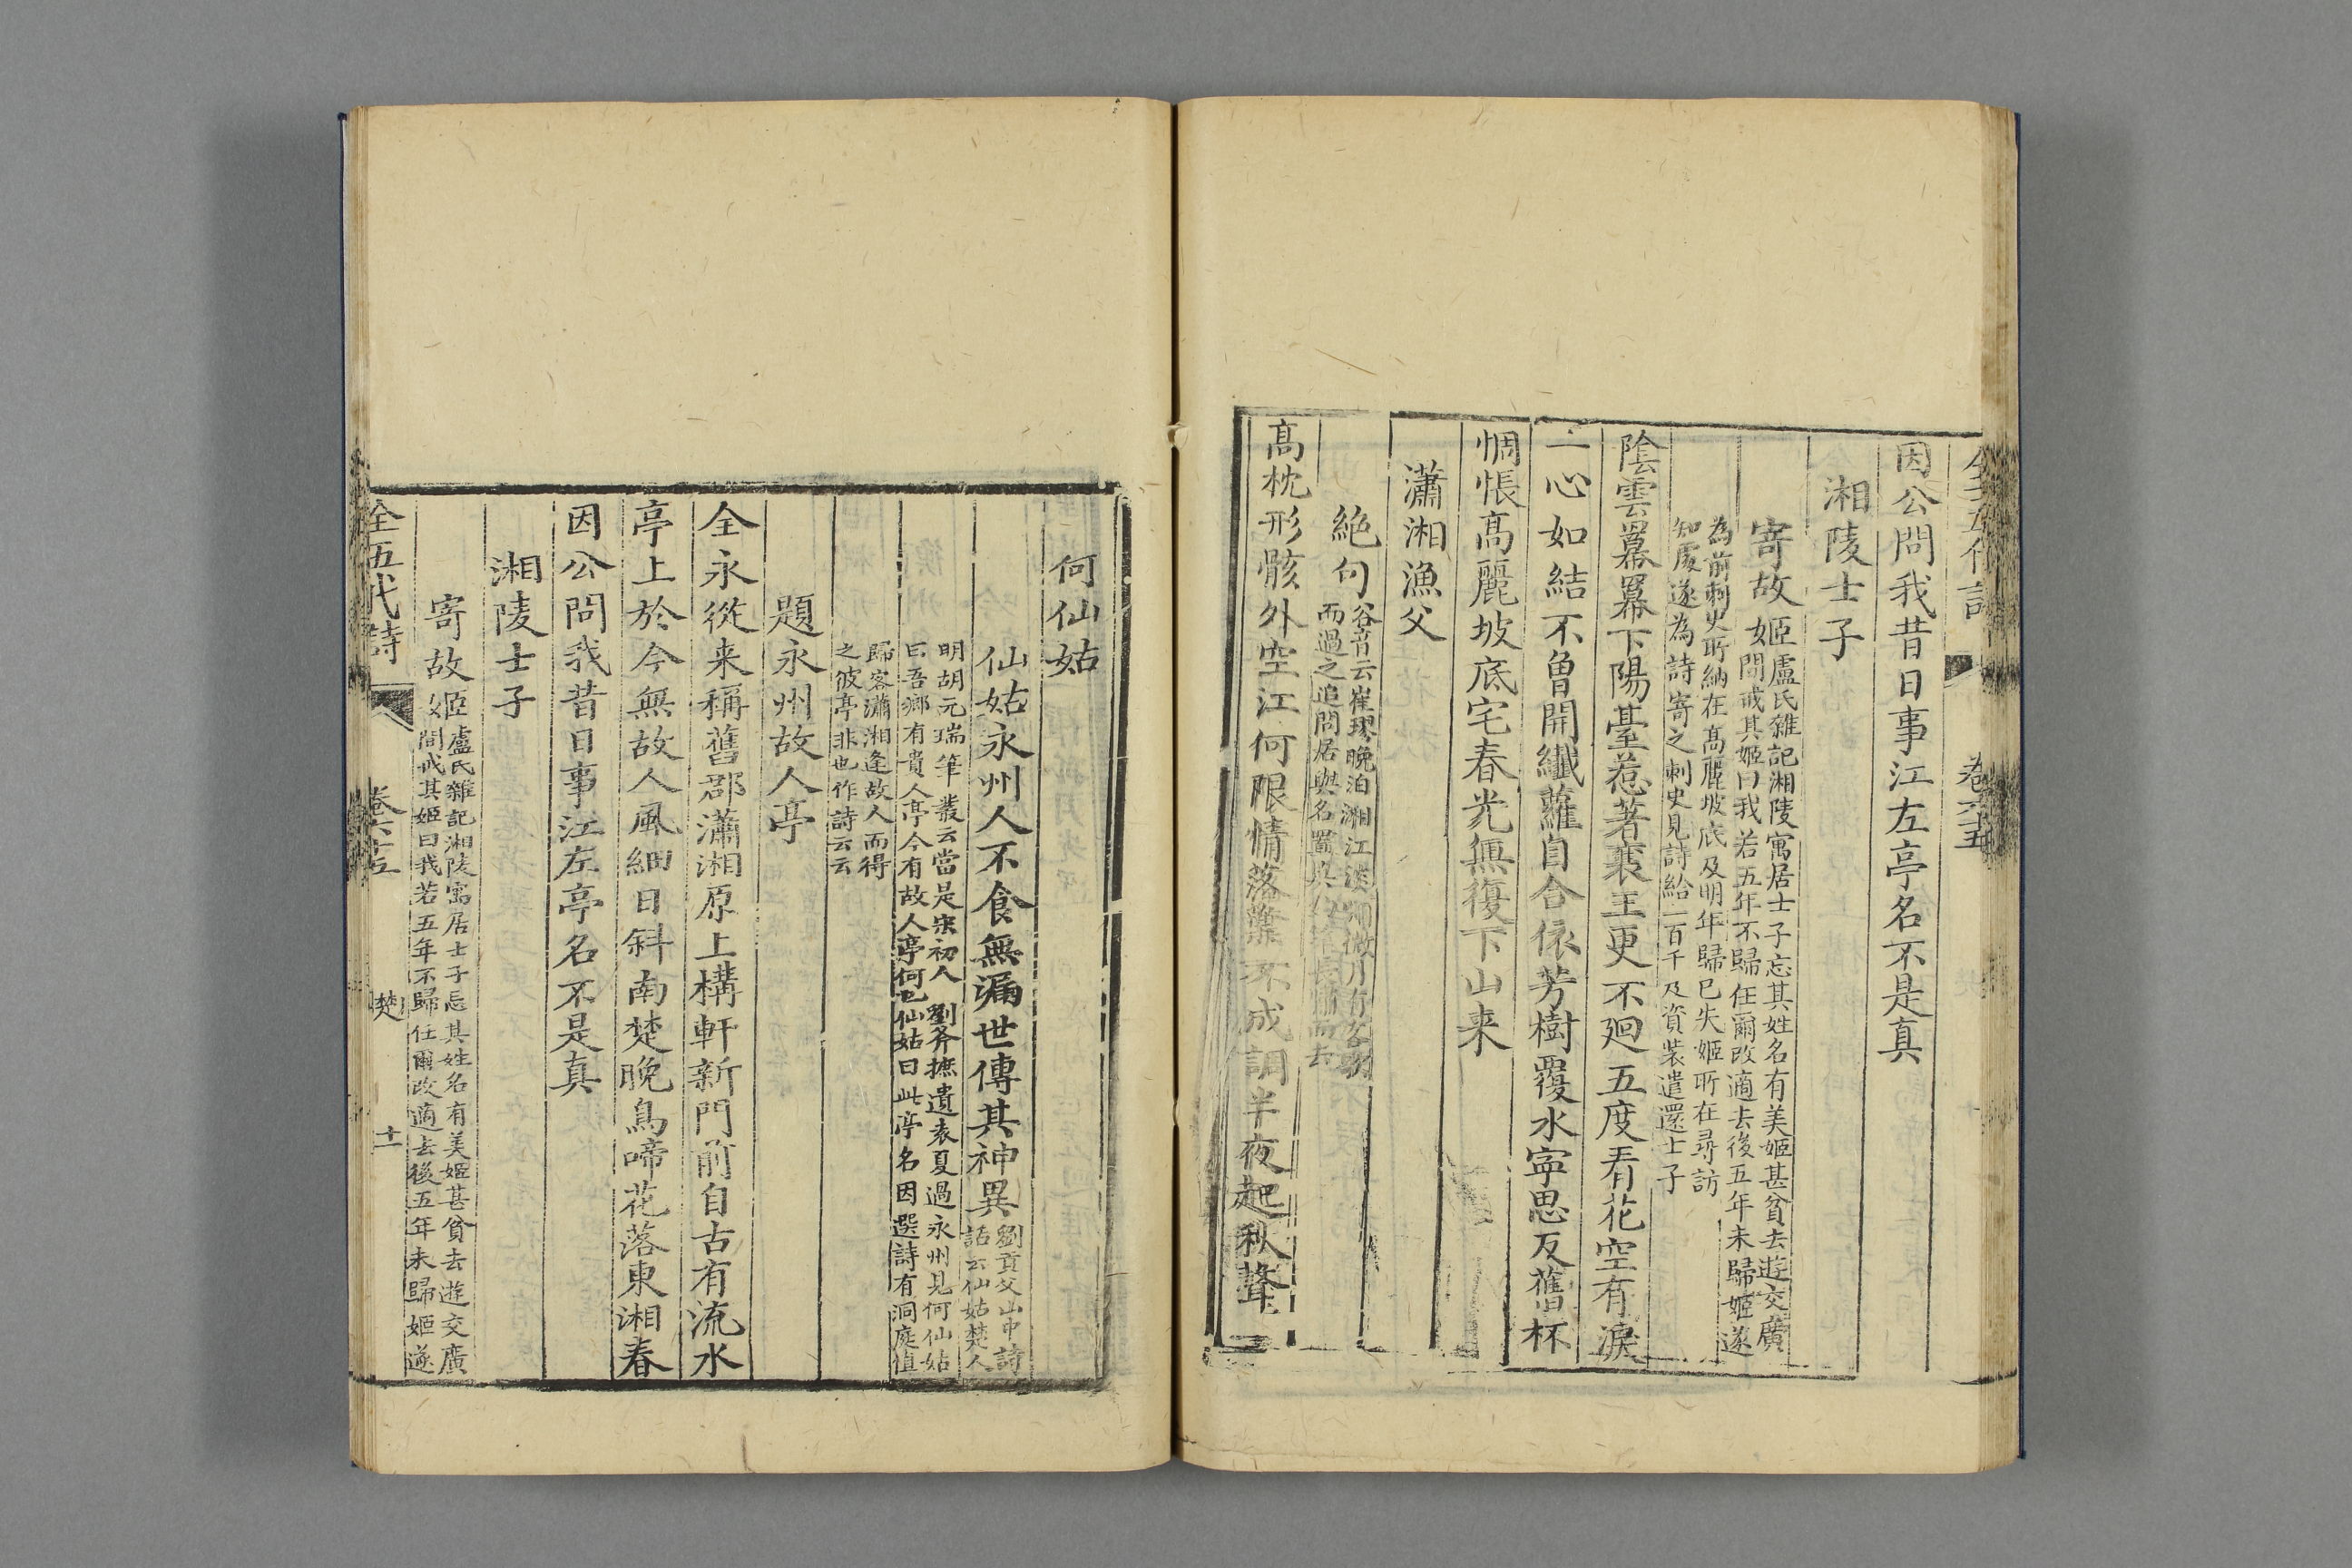 全五代詩
卷六十五
因公問我昔日事江左亭名不是真
湘陵士子
寄故姬
盧氏雜記湘陵寓居士子忘其姓名有美姬甚貧去遊交廣
間戒其姬曰我若五年不歸任爾改適去後五年未歸姬遂
為前刺史所納在高麗坡底及明年歸已失姬所在尋訪
知處遂為詩寄之刺史見詩給一百千及資裝遣還士子
陰雲羃羃下陽臺惹著襄王更不廻五度看花空有淚
一心如結不曾開纖蘿自合依芳樹覆水寧思反舊杯
惆悵高麗坡底宅春光無復下山来
瀟湘漁父
絶句
谷音云崔璆晚泊湘江淡烟微月有客歌
而過之追問居與名置與長嘯而去
高枕形骸外空江何限情落葉不成調半夜起秋聲
何仙姑
仙姑永州人不食無漏世傳其神異
劉貢父山中詩
話云仙姑楚人
明胡元瑞筆叢云當是宋初人 劉斧摭遺表夏過永州見何仙姑
曰吾鄉有貴人亭今有故人亭何也仙姑曰此亭名因選詩有洞庭值
歸客瀟湘逢故人而得
之彼亭非也作詩云云
題永州故人亭
全永從来稱舊郡瀟湘原上構軒新門前自古有流水
亭上於今無故人風細日斜南楚晚鳥啼花落東湘春
因公問我昔日事江左亭名不是真
湘陵士子
寄故姬
盧氏雜記湘陵寓居士子忘其姓名有美姬甚貧去遊交廣
間戒其姬曰我若五年不歸任爾改適去後五年未歸姬遂
全五代詩
卷六十五
楚
十一